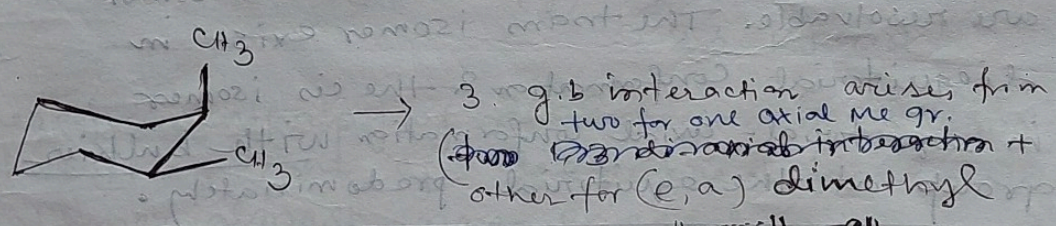 CH3
CH3
→ 3. g.b interaction arises from
two for one axial Me gr.
( +
other for (e,a) dimethyl